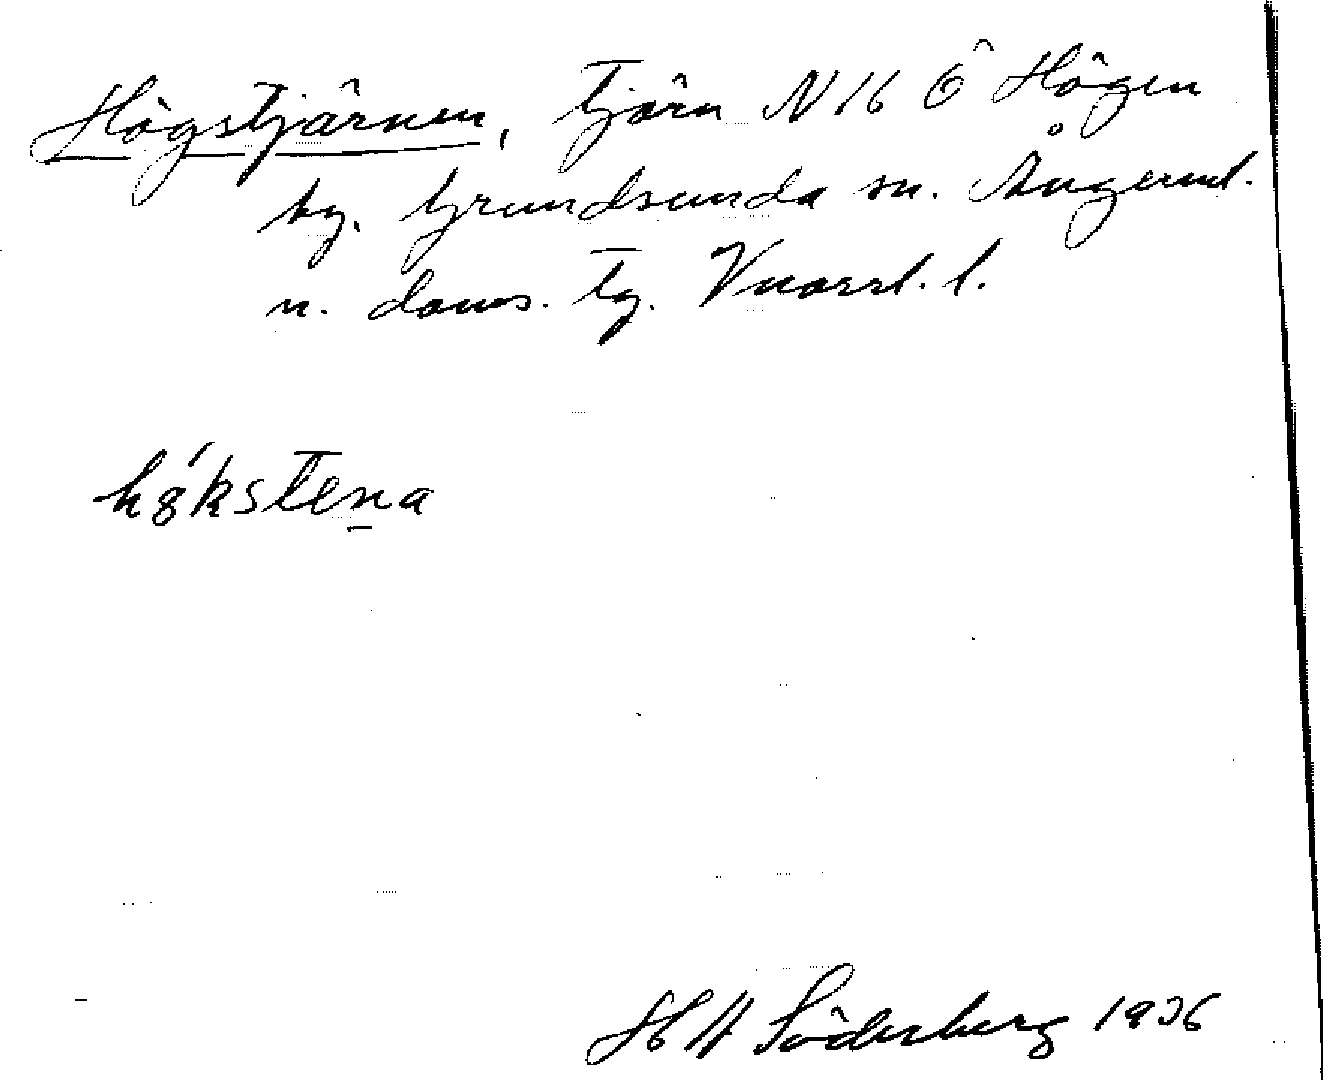 Högstjärnen, tjärn N 16 Ö Högen
by. Grundsunda sn. Ångerml.
n. doms. tg. Vnorrl. l.
hǿkstena
H H Söderberg 1936